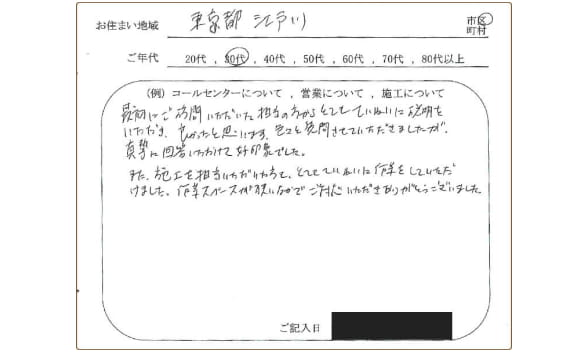 お住まい地域 東京都 江戸川 市区町村
ご年代 20代 , 30代 , 40代 , 50代 , 60代 , 70代 , 80代以上
(例) コールセンターについて , 営業について , 施工について
最初にご訪問いただいた担当の方からとてもていねいに説明を
いただき、よかったと思います。色々と質問させていただきましたが、
真摯に回答いただけて好印象でした。
また、施工を担当いただいた方も、とてもていねいに作業をしていただ
けました。作業スペースが狭いなかでご対応いただきありがとうございました
ご記入日